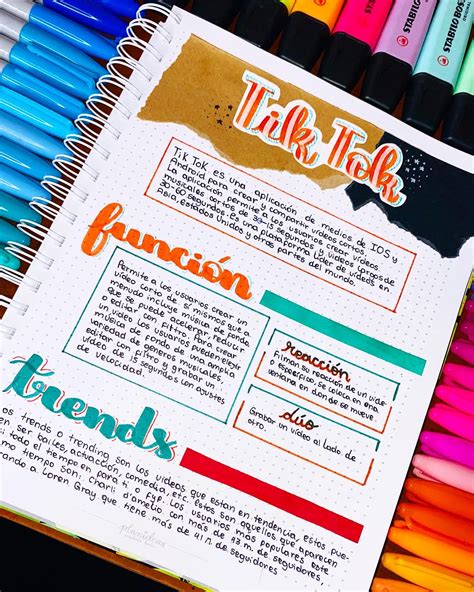 Tik Tok
Tik Tok es una aplicación de medios de IOS y
Android para crear y compartir vídeos cortos.
La aplicación permite a los usuarios crear vídeos
musicales cortos de 3-15 segundos y videos largos de
30-60 segundos. Es una plataforma líder de vídeos en
Asia, Estados Unido y otras partes del mundo.
función
Permite a los usuarios crear un
video corto de sí mismos que a
menudo incluye música de fondo,
que se puede acelerar, reducir
o editar con filtro. Para crear
un video los usuarios pueden elegir
música de fondo de una amplia
variedad de géneros musicales,
editar con filtro y grabar un
vídeo de 15 segundos con ajustes
de velocidad.
reacción
Filman su reacción de un vídeo
específico, se coloca en una
ventana en donde se mueve
dúo
Grabar un vídeo al lado de
otro.
trends
los trends o trending son los videos que estan en tendencia, estos pue-
en ser bailes, actuación, comedia, etc. Estos son aquellos que aparecen
todo el tiempo en para ti o fyp. Los usuarios más populares este
mo tiempo son: charli d'amelio con más de 43 m. de seguidores
rando a Loren Gray que tiene más de 41 M. de seguidores
STABILO BOSS
ORIGINAL
STABILO BOSS